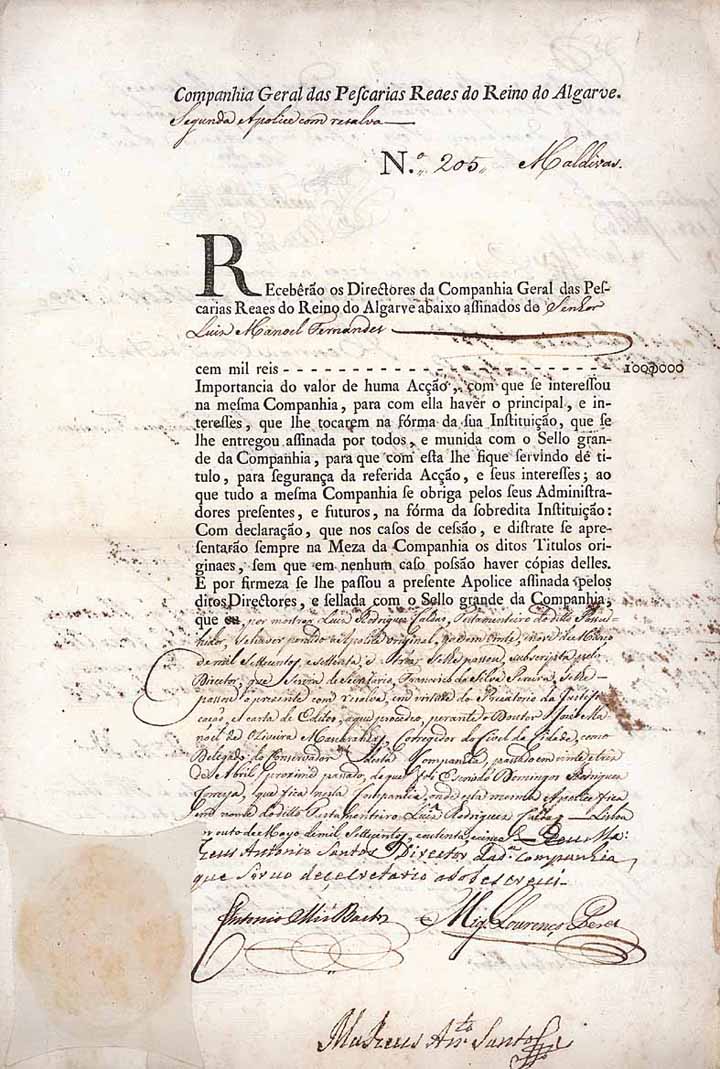 Companhia Geral das Peſcarias Reaes do Reino do Algarve.
Segunda Apolice com resalva
N.º 205 Maldivas.
REcebêrão os Directores da Companhia Geral das Peſ-
carias Reaes do Reino do Algarve abaixo aſſinados do Senhor
Luiz Manoel Fernandes
cem mil reis - - - - - - - - - - - - - - - - - - - - - - - - 100ↄ000
Importancia do valor de huma Acção, com que ſe intereſſou
na meſma Companhia, para com ella haver o principal, e in-
tereſſes, que lhe tocarem na fórma da ſua Inſtituição, que ſe
lhe entregou aſſinada por todos, e munida com o Sello gran-
de da Companhia, para que com eſta lhe fique ſervindo de ti-
tulo, para ſegurança da referida Acção, e ſeus intereſſes; ao
que tudo a meſma Companhia ſe obriga pelos ſeus Adminiſtra-
dores preſentes, e futuros, na fórma da ſobredita Inſtituição:
Com declaração, que nos caſos de ceſsão, e diſtrate ſe apre-
ſentarão ſempre na Meza da Companhia os ditos Titulos ori-
ginaes, ſem que em nenhum caſo poſsão haver cópias delles.
E por firmeza ſe lhe paſſou a preſente Apolice aſſinada pelos
ditos Directores, e ſellada com o Sello grande da Companhia,
que por mostrar Luiz Rodrigues Caldas, Testamenteiro do dito Possu-
hidor, haver perdido a Apolice original, de vinte
de mil Settecentos e settenta, e se lhe passou, subscripta pelo
Director, que servia de Secretario, Francisco da Silva Pereira, se lhe
passou a presente com resalva, em virtude do Precatorio da Justifi-
cação, e carta de Editos, a que procedeo, perante o Doutor José Ma-
noel de Oliveira Mascarenhas, Corregedor do Civel da Cidade, como
Delegado do Conservador desta Companhia, passado em vinte e tres
de Abril proximo passado, de que foi Escrivão Domingos Rodrigues
que fica nesta Companhia, onde esta mesma Apolice fica
em nome do dito Testamenteiro Luiz Rodrigues Caldas Lisboa
outo de Mayo de mil Settecentos, e outenta, e cinco E eu Ma-
theus Antonio Santos Director da d.ª Companhia
que sirvo de secretario a sobescrevi.
Antonio Mig. Lourenço Peres
Matheus An.to Santos